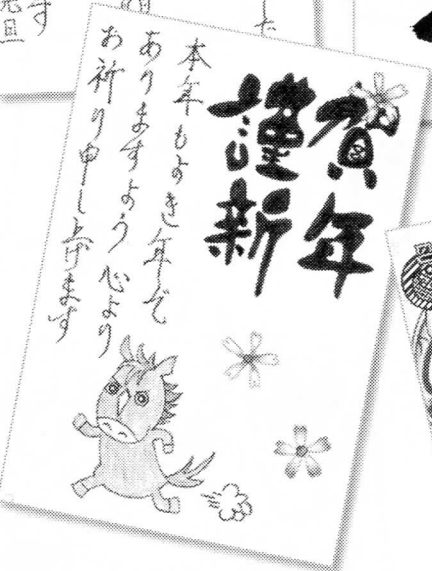 謹賀
新年
本年もよき年で
ありますよう心より
お祈り申し上げます
元旦